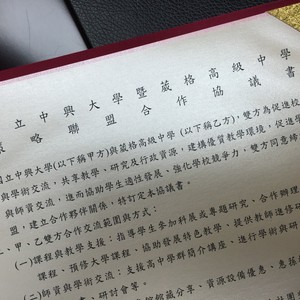 立中興大學暨葳格高級中學
略聯盟合作協議書
國立中興大學(以下稱甲方)與葳格高級中學(以下稱乙方),雙方為促進校
與學術交流,共享教學、研究及行政資源,建構優質教學環境,促進學
與師資交流,進而協助學生適性發展,強化學校競爭力,雙方同意締
盟,建立合作夥伴關係,特訂定本協議書。
、甲、乙雙方合作交流範圍與方式:
(一)課程與教學支援:指導學生參加科展或專題研究、合作辦
課程、預修大學課程,協助發展特色教學、提供教師進修研
(二)師資與學術交流:支援高中學群簡介講座、進行學術與研
書、研討會等。
館藏分享、資源設備優惠、急